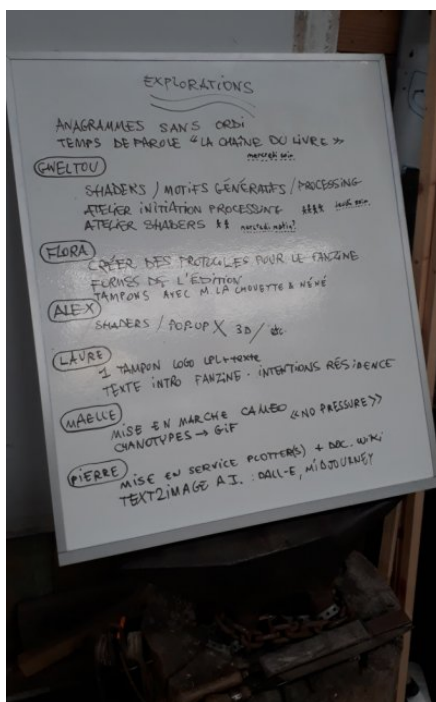 EXPLORATIONS
ANAGRAMMES SANS ORDI
TEMPS DE PAROLE "LA CHAÎNE DU LIVRE"
mercredi soir
GWELTOU
SHADERS / MOTIFS GÉNÉRATIFS / PROCESSING
ATELIER INITIATION PROCESSING **** jeudi soir
ATELIER SHADERS ** mercredi matin!
FLORA
CRÉER DES PROTOCOLES POUR LE FANZINE
FORMES DE L'ÉDITION
TAMPONS AVEC M LA CHOUETTE & NÉNÉ
ALEX
SHADERS / POP-UP X 3D / etc.
LAURE
1 TAMPON LOGO LPL + texte
TEXTE INTRO FANZINE · INTENTIONS RÉSIDENCE
MAELLE
MISE EN MARCHE CAMEO «NO PRESSURE»
CYANOTYPES → GIF
PIERRE
MISE EN SERVICE PLOTTER(S) + DOC. WIKI
TEXT2IMAGE A.I. : DALL-E, MIDJOURNEY